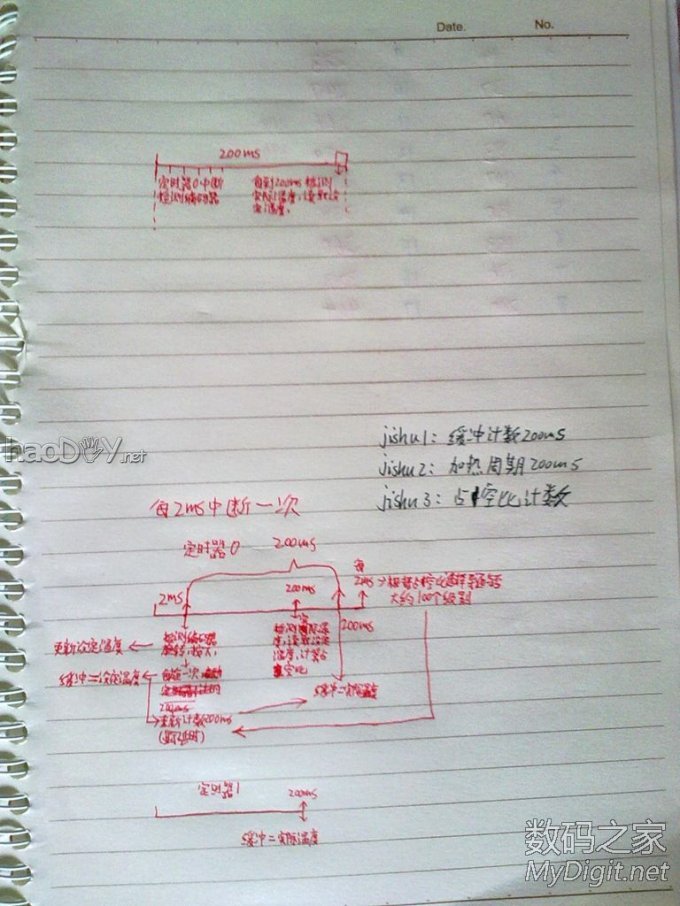 Date.
No.
200ms
定时器0中断
检测编码器
每到200ms检测
实际温度,读取设
定温度.
haoDIY.net
jishu1: 缓冲计数200ms
jishu2: 加热周期200ms
jishu3: 占空比计数
每2ms中断一次
定时器0
200ms
每
2ms
200ms
2ms
大约100个级别
200ms
更新设定温度
检测编码器
温度,计算占
空比
缓冲=设定温度
缓冲=实际温度
重新计数200ms
定时器1
200ms
缓冲=实际温度
数码之家
MyDigit.net